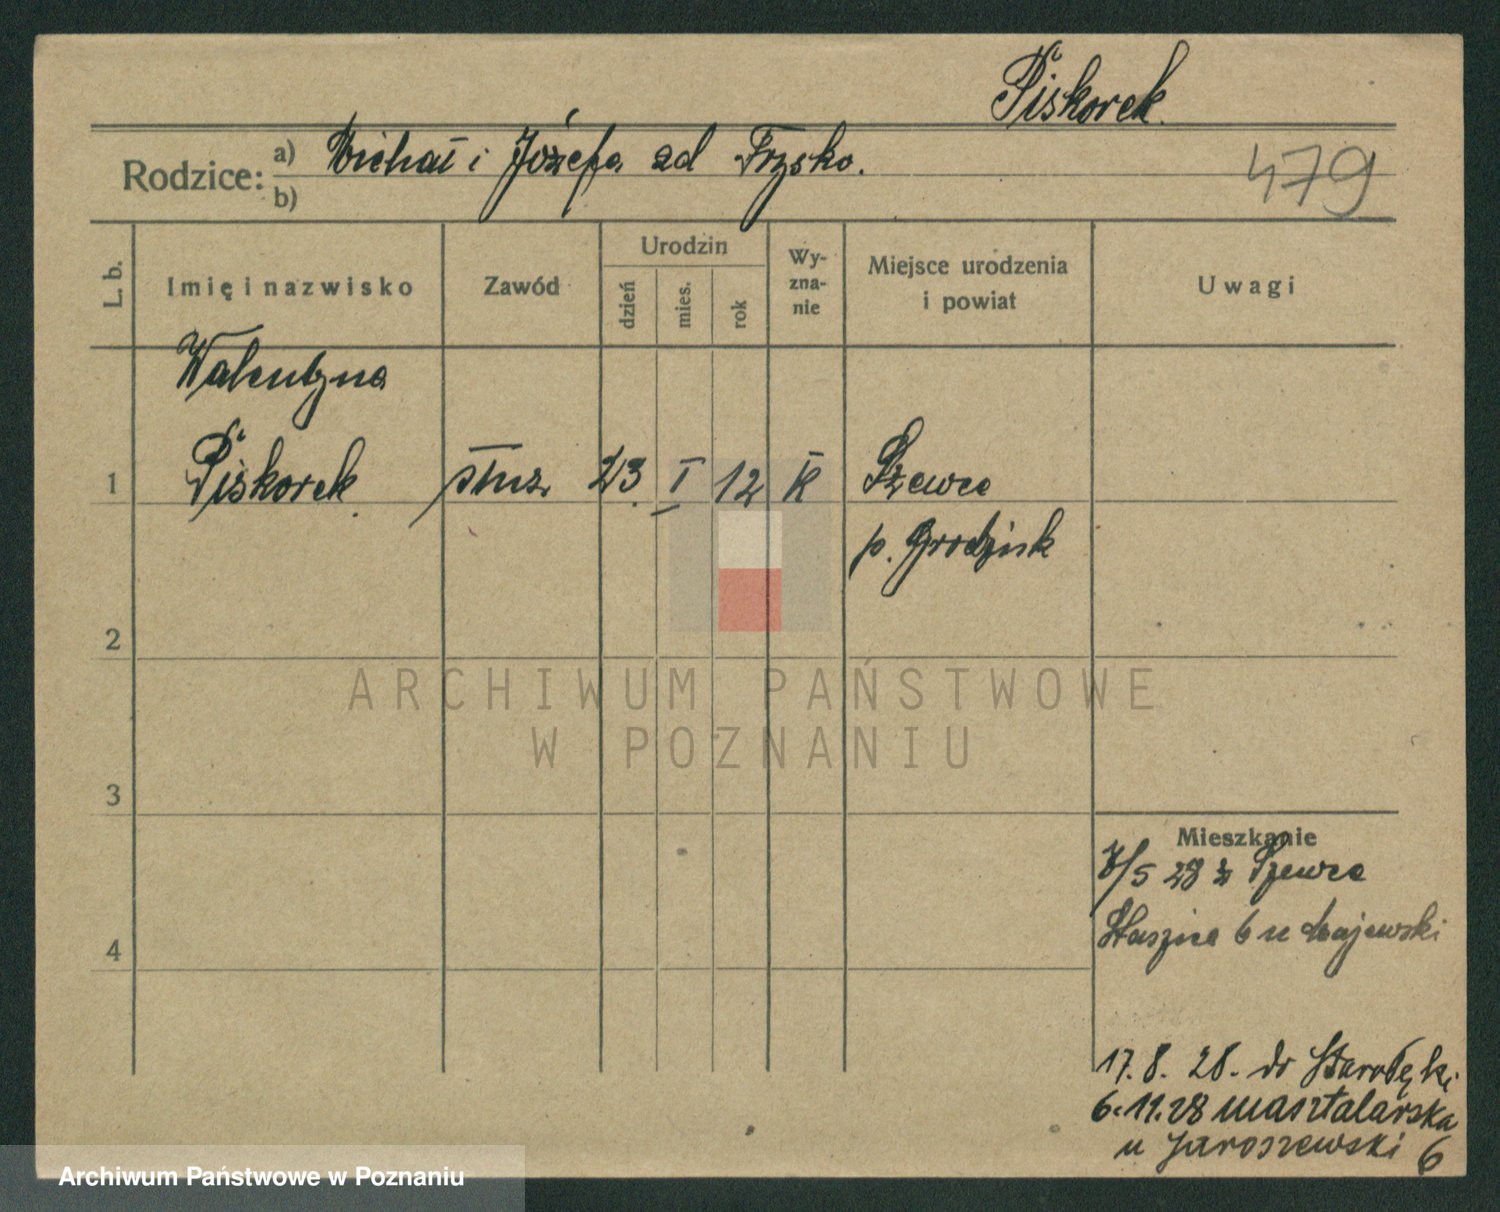 Piskorek
Rodzice: a) Michał i Józefa zd Frysko.
b)
479
L. b.
Imię i nazwisko
Zawód
Urodzin
dzień
mies.
rok
Wy-
zna-
nie
Miejsce urodzenia
i powiat
Uwagi
Walentyna
1 Piskorek służ. 23. I 12 K Szewce
p. Grodzisk
2
ARCHIWUM PAŃSTWOWE
W POZNANIU
3
Mieszkanie
/5 28 z Szewce
Staszica 6 u Majewski
4
17.8.28. do Starołęki
6.11.28 masztalarska
u Jaroszewski 6
Archiwum Państwowe w Poznaniu